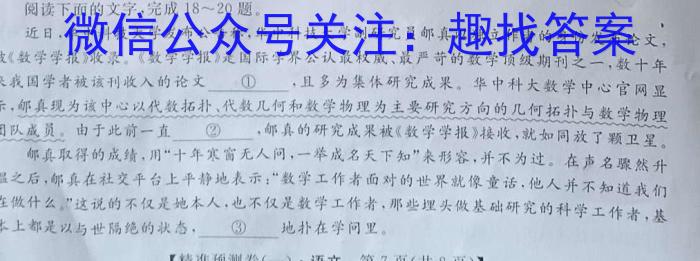 阅读下面的文字,完成18~20题。
微信公众号关注:趣找答案
近日,
论文,
《数学学报》收录。《数学学报》是国际学界公认最权威、最严苛的数学顶级期刊之一,数十年
来我国学者被该刊收入的论文 ① ,且多为集体研究成果。华中科大数学中心官网显
示,邮真现为该中心以代数拓扑、代数几何和数学物理为主要研究方向的几何拓扑与数学物理
团队成员。由于此前一直 ② ,邮真的研究成果被《数学学报》接收,就如同放了颗卫星。
邮真取得的成绩,用“十年寒窗无人问,一举成名天下知”来形容,并不为过。在声名骤然升
温之后,邮真在社交平台上平静地表示:“数学工作者面对的世界就像童话,他人并不知道我们
在做什么。”这说的不仅是她本人,也不仅是数学工作者,那些埋头做基础研究的科学工作者,基
本上都是以与世隔绝的状态, ③ 地扑在学问里。
【精准预测卷(一) 语文 第7页(共8页)】